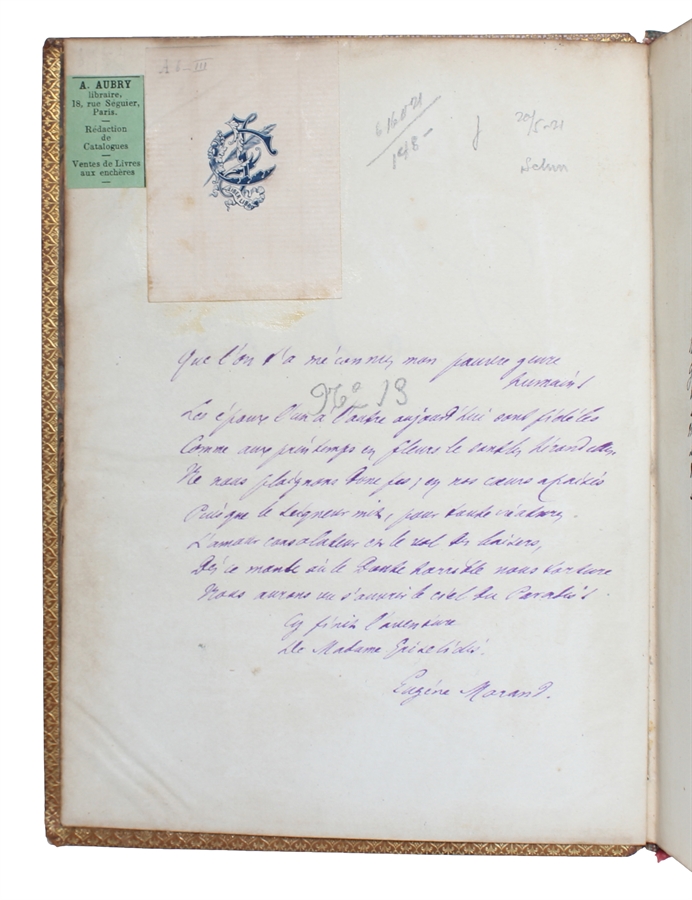 A. AUBRY
libraire,
18, rue Séguier,
Paris.
Rédaction
de
Catalogues
Ventes de Livres
aux enchères
A I - III
EX LIBRIS
61681
148-
20/5-31
Schm
Que l'on t'a méconnu, mon pauvre genre
humain!
No 19
Les époux l'un à l'autre aujourd'hui sont fidèles
Comme aux printemps en fleurs le sont les hirondelles.
Ne nous plaignons donc pas; en nos cœurs apaisés
Puisque le Seigneur mit, pour toute créature,
L'amour consolateur et le vol des baisers,
Dès ce monde où le Doute horrible nous torture
Nous aurons vu s'ouvrir le ciel du Paradis.
Cy finit l'aventure
De Madame Griselidis.
Eugène Morand.